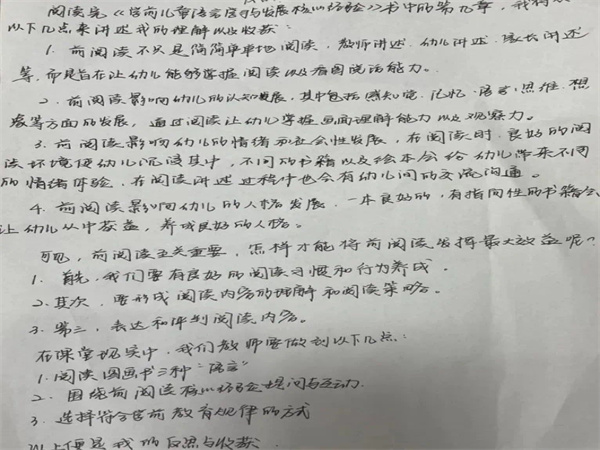 阅读完《学前儿童语言学习与发展核心经验》书中的第九章,我将从
以下几点来讲述我的理解以及收获:
1. 前阅读不只是简简单单地阅读,教师讲述、幼儿讲述、家长讲述
等,而是旨在让幼儿能够掌握阅读以及看图说话能力。
2. 前阅读影响幼儿的认知发展,其中包括感知觉、记忆、语言、思维、想
象等方面的发展,通过阅读让幼儿掌握画面理解能力以及观察力。
3. 前阅读影响幼儿的情绪和社会性发展,在阅读时,良好的阅
读环境使幼儿沉浸其中,不同的书籍以及绘本会给幼儿带来不同
的情绪体验,在阅读讲述过程中也会有幼儿间的交流沟通。
4. 前阅读影响幼儿的人格发展,一本良好的,有指向性的书籍会
让幼儿从中获益,养成良好的人格。
可见,前阅读至关重要,怎样才能将前阅读发挥最大效益呢?
1. 首先,我们要有良好的阅读习惯和行为养成。
2. 其次,要形成阅读内容的理解和阅读策略。
3. 第三,表达和评判阅读内容。
在课堂现实中,我们教师要做到以下几点:
1. 阅读图画书三种“语言”
2. 围绕前阅读核心经验提问与互动.
3. 选择符合学前教育规律的方式
以上便是我的反思与收获.